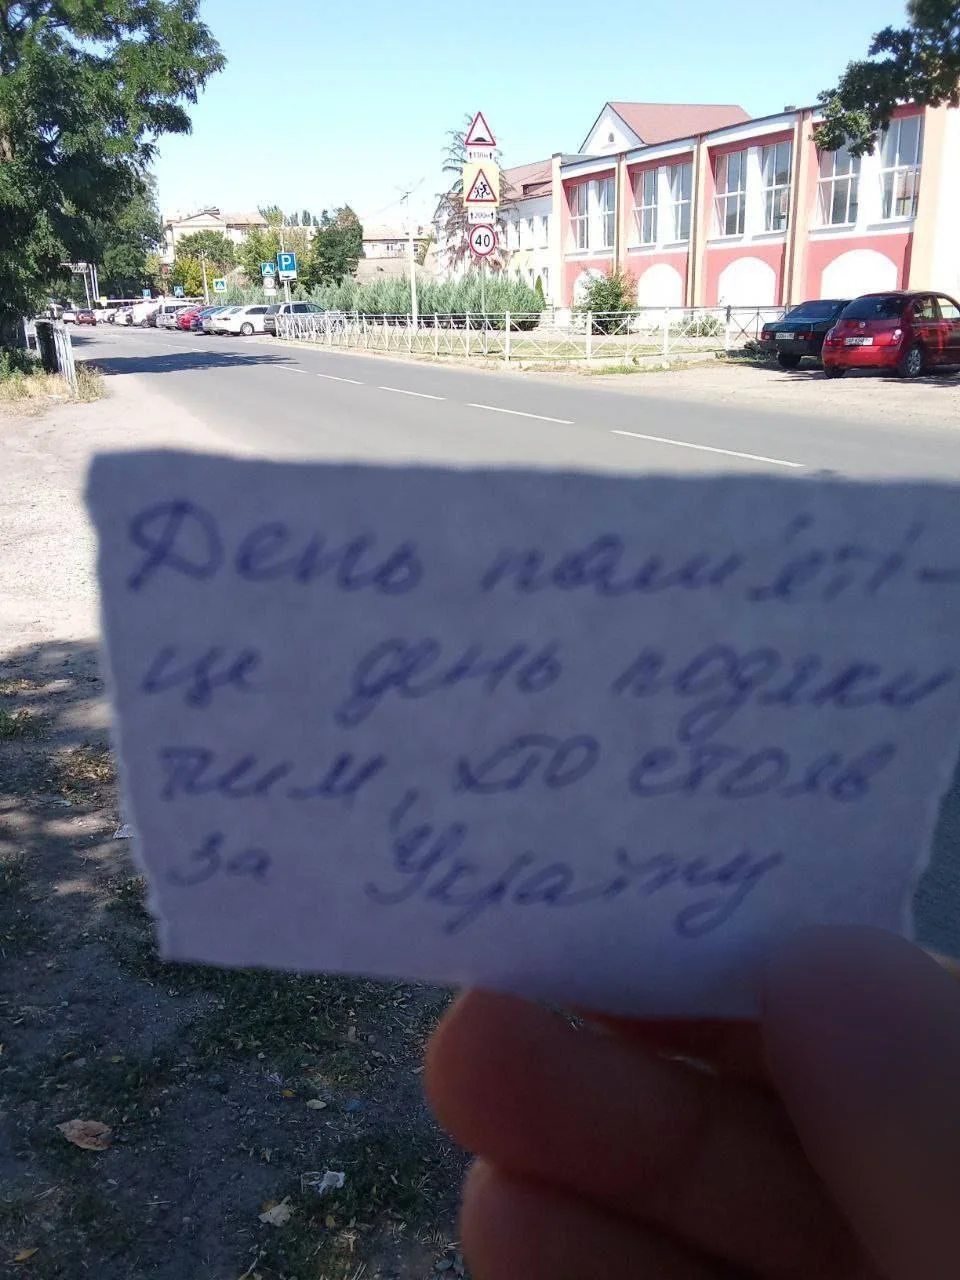 110м
200м
40
P
День пам'яті -
це день подяки
тим, хто стояв
за Україну